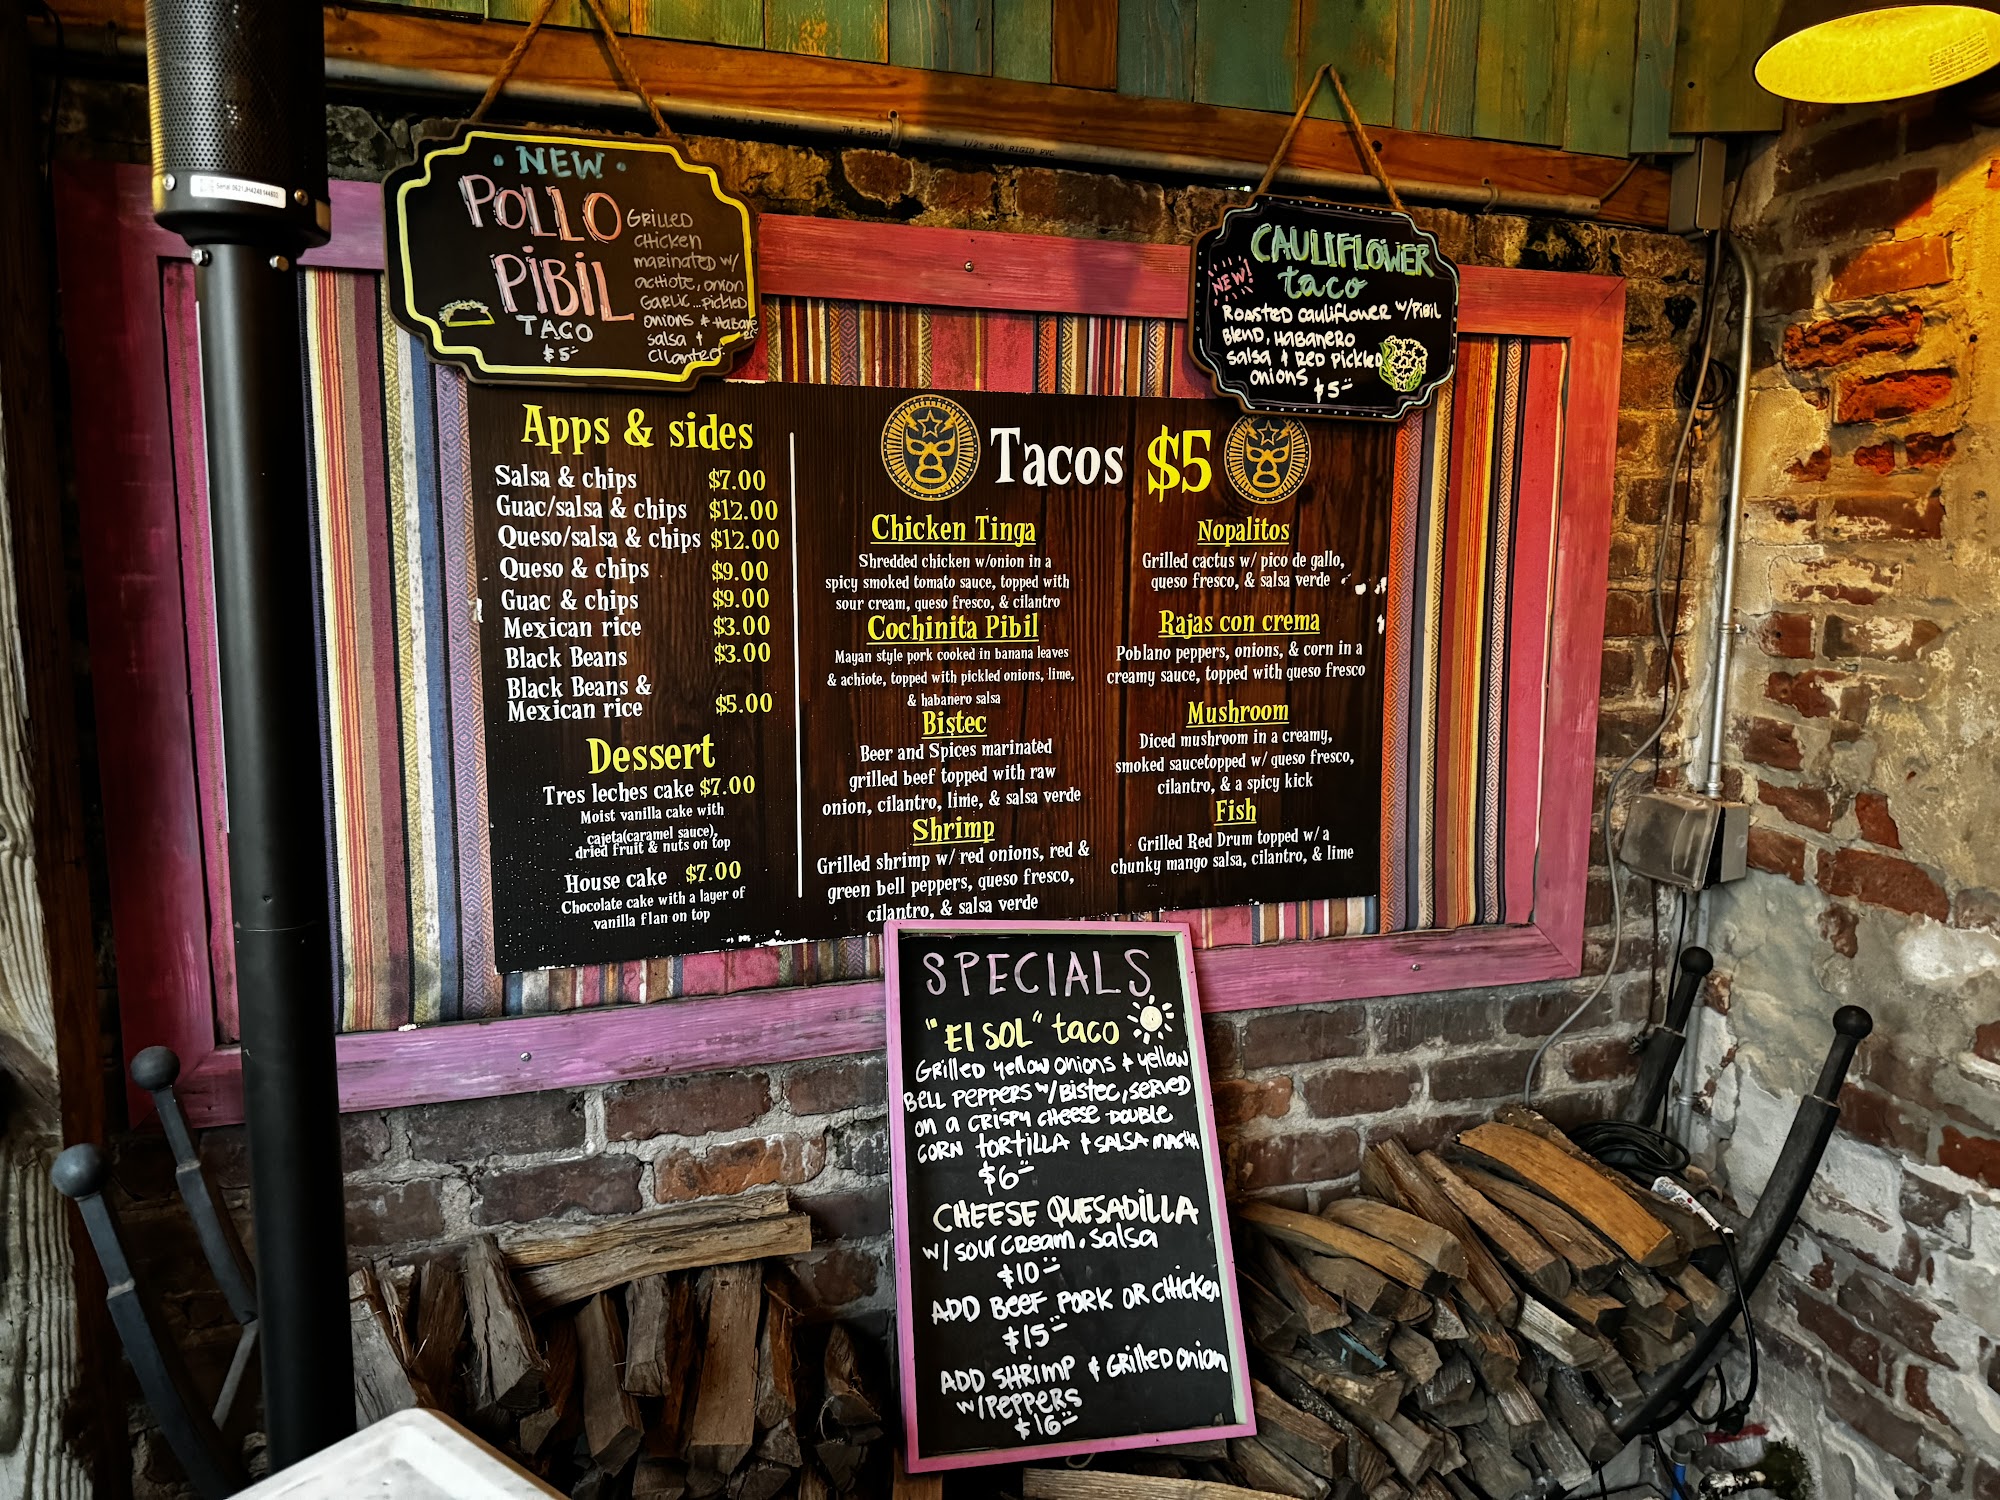 • NEW •
POLLO
PIBIL
TACO
$5
GRILLED
CHICKEN
MARINATED W/
ACHIOTE, ONION
GARLIC...PICKLED
ONIONS +
SALSA +
CILANTRO
NEW!
CAULIFLOWER
taco
ROASTED CAULIFLOWER W/PIBIL
BLEND, HABANERO
SALSA & RED PICKLED
ONIONS $5
Apps & sides
Salsa & chips $7.00
Guac/salsa & chips $12.00
Queso/salsa & chips $12.00
Queso & chips $9.00
Guac & chips $9.00
Mexican rice $3.00
Black Beans $3.00
Black Beans &
Mexican rice $5.00
Dessert
Tres leches cake $7.00
Moist vanilla cake with
cajeta(caramel sauce),
dried fruit & nuts on top
House cake $7.00
Chocolate cake with a layer of
vanilla flan on top
Tacos $5
Chicken Tinga
Shredded chicken w/onion in a
spicy smoked tomato sauce, topped with
sour cream, queso fresco, & cilantro
Cochinita Pibil
Mayan style pork cooked in banana leaves
& achiote, topped with pickled onions, lime,
& habanero salsa
Bistec
Beer and Spices marinated
grilled beef topped with raw
onion, cilantro, lime, & salsa verde
Shrimp
Grilled shrimp w/ red onions, red &
green bell peppers, queso fresco,
cilantro, & salsa verde
Nopalitos
Grilled cactus w/ pico de gallo,
queso fresco, & salsa verde
Rajas con crema
Poblano peppers, onions, & corn in a
creamy sauce, topped with queso fresco
Mushroom
Diced mushroom in a creamy,
smoked saucetopped w/ queso fresco,
cilantro, & a spicy kick
Fish
Grilled Red Drum topped w/ a
chunky mango salsa, cilantro, & lime
SPECIALS
"El SOL" taco
GRILLED YELLOW ONIONS + YELLOW
BELL PEPPERS W/BISTEC, SERVED
ON A CRISPY CHEESE DOUBLE
CORN TORTILLA + SALSA MACHA
$6
CHEESE QUESADILLA
W/ SOUR CREAM, SALSA
$10
ADD BEEF, PORK OR CHICKEN
$15
ADD SHRIMP + GRILLED ONION
W/PEPPERS
$16